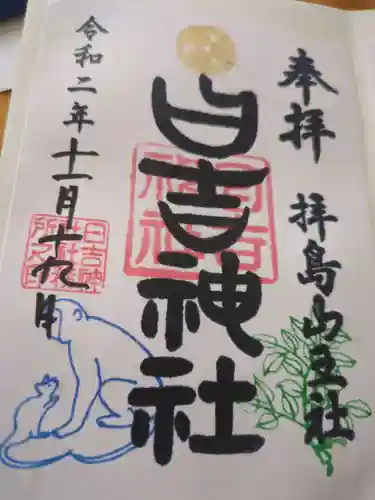 奉拝
拝島山王社
日吉神社
令和二年十一月十九日
日吉神
社社務
所之印